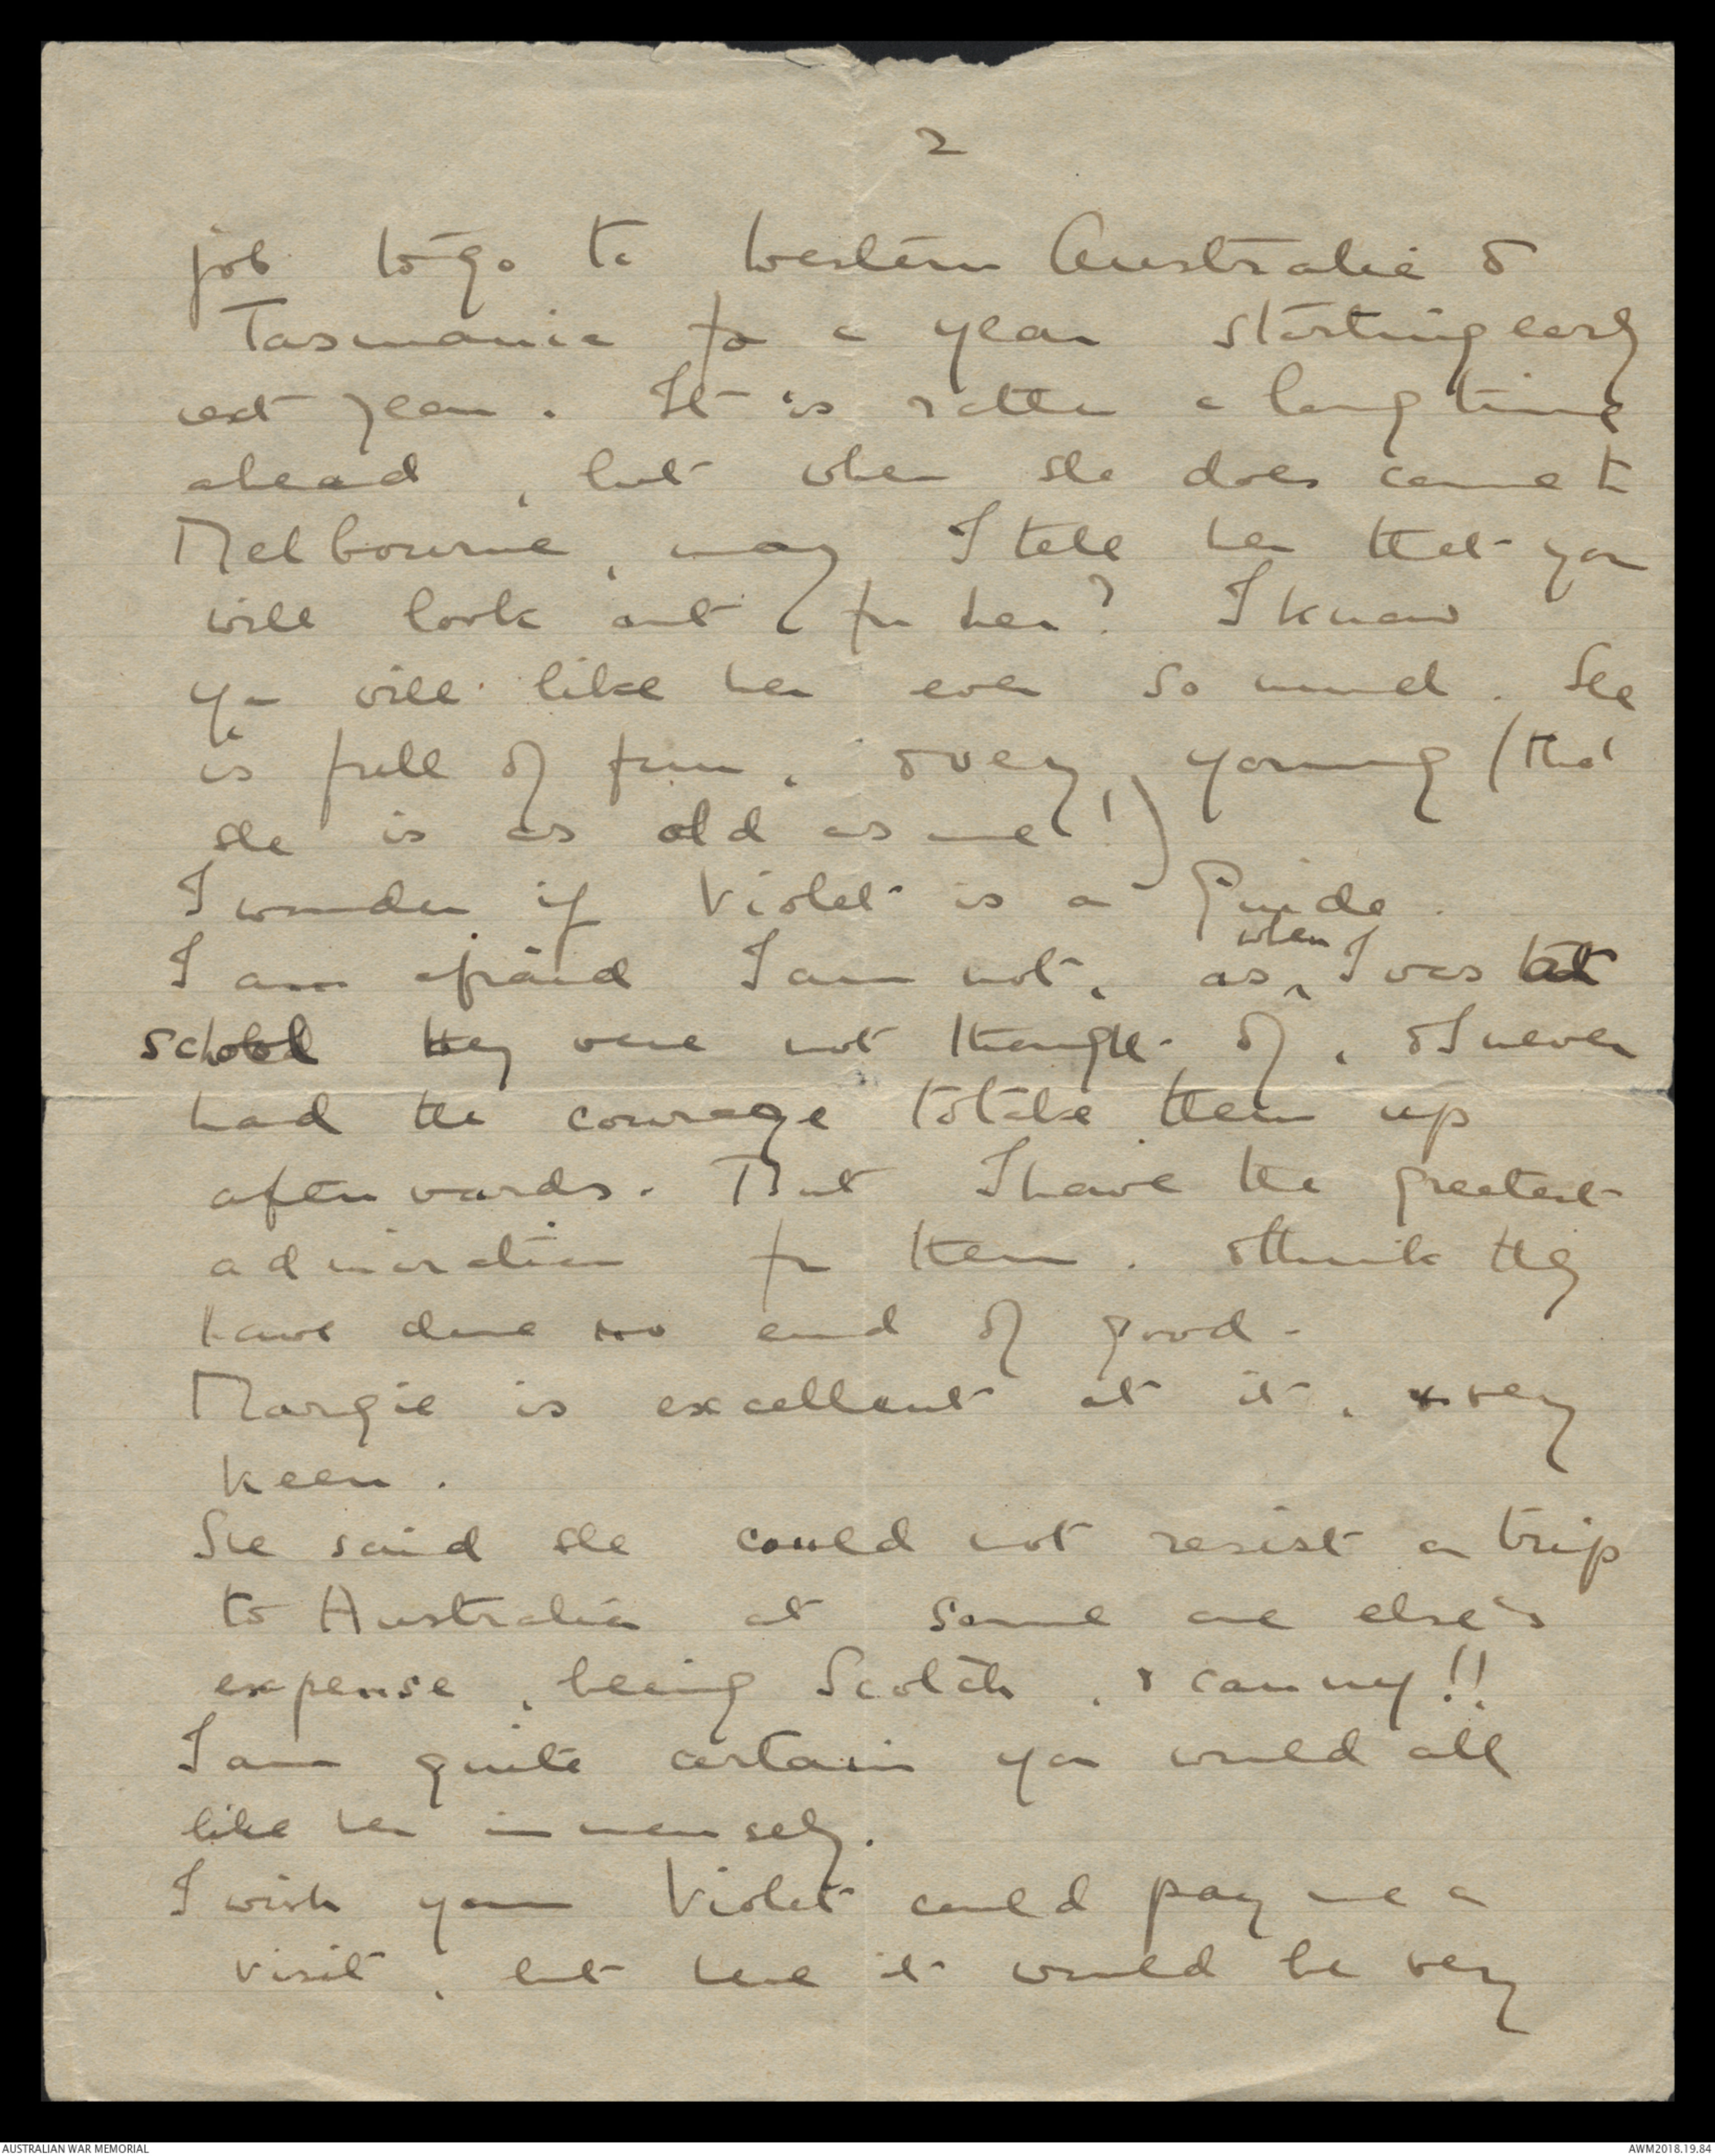 2
job to go to Western Australia &
Tasmania for a year starting early
next year. It is rather a long time
ahead, but when she does come to
Melbourne, may I tell her that you
will look out for her? I know
you will like her ever so much. She
is full of fun, & very, young (tho'
she is as old as me!)
I wonder if Violet is a Guide.
I am afraid I am not, as when I was at
school they were not thought of, & I never
had the courage to take them up
afterwards. But I have the greatest
admiration for them. & think they
have done no end of good -
Margie is excellent at it, & very
keen.
She said she could not resist a trip
to Australia at some one else's
expense, being Scotch, & canny!!
I am quite certain you would all
like her immensely.
I wish your Violet could pay me a
visit, but here it would be very
AUSTRALIAN WAR MEMORIAL
AWM2018.19.84